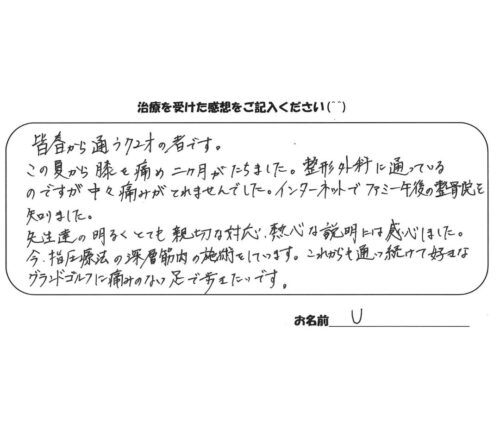 治療を受けた感想をご記入ください(^^)
皆春から通う72才の者です。
この夏から膝を痛め二ヶ月がたちました。整形外科に通っている
のですが中々痛みがとれませんでした。インターネットでファミー午後の整骨院を
知りました。
先生達の明るくとても親切な対応、熱心な説明には感心しました。
今、指圧療法の深層筋肉の施術をしています。これからも通い続けて好きな
グランドゴルフに痛みのない足で歩きたいです。
お名前 U